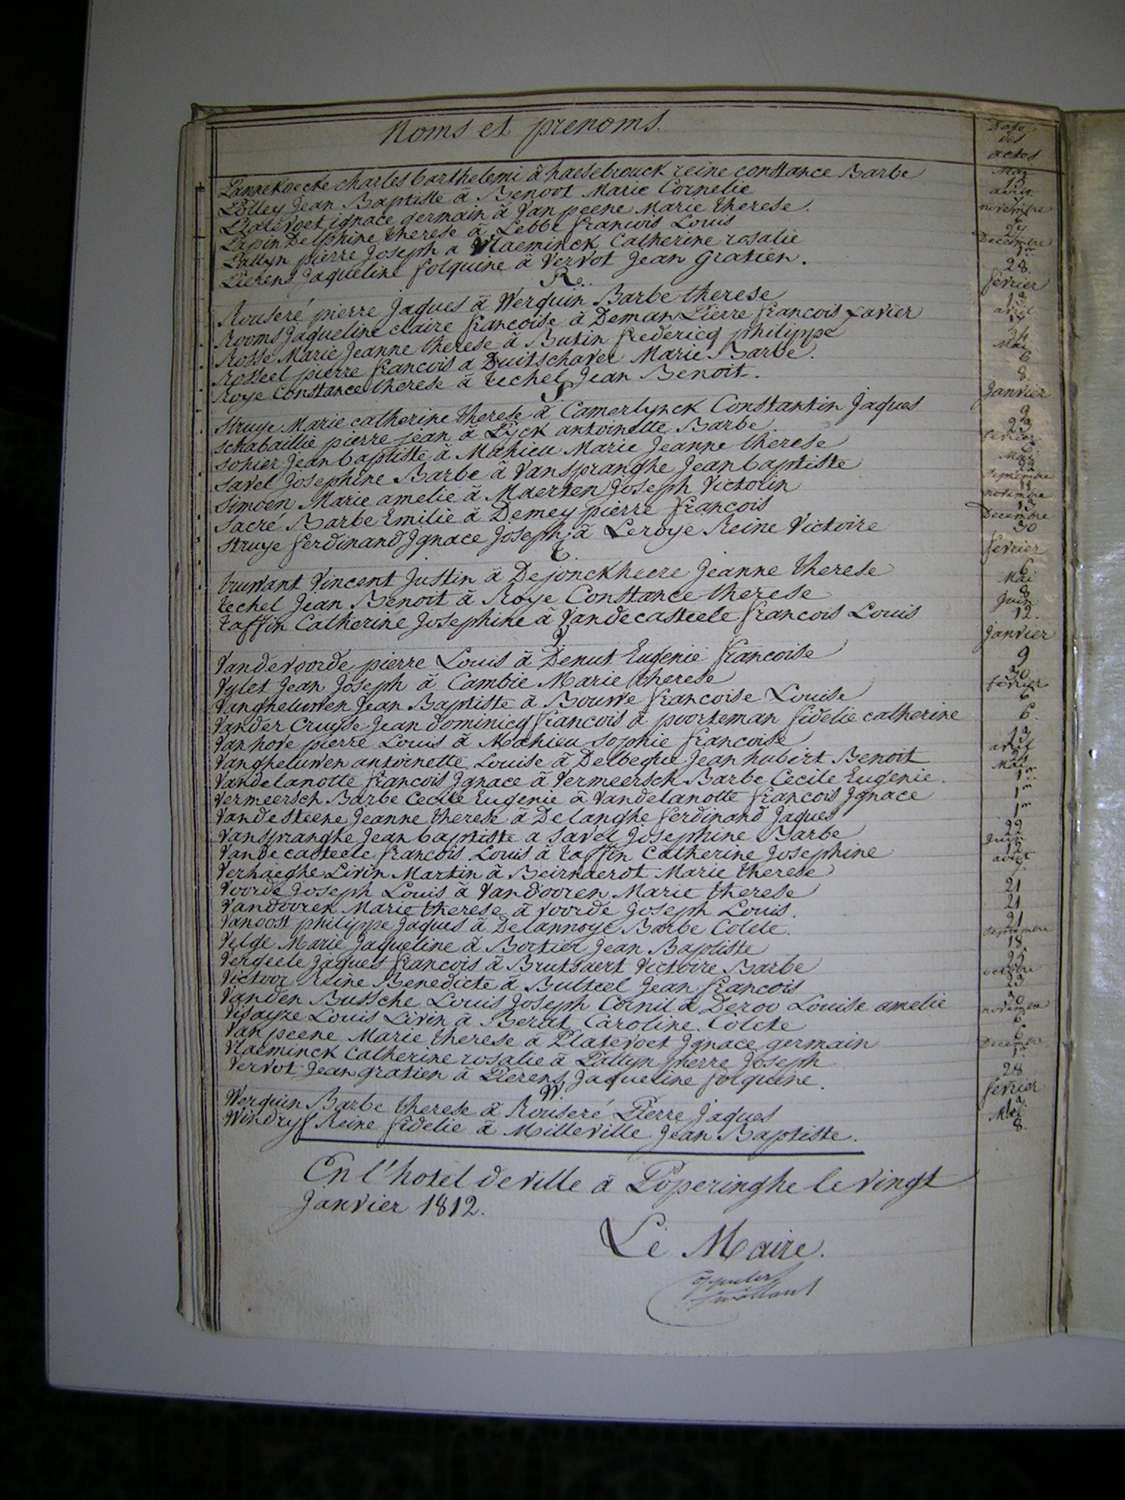 Noms et prenoms.
Date des actes
Pannekoecke charles barthelemi à haesebrouck reine constance Barbe
Polley Jean Baptiste à Benoot Marie Cornelie
Platevoet ignace germain à Van peene Marie therese.
Papin Delphine therese à Lebbe francois Louis
Pattyn pierre Joseph a Vlaeminck Catherine rosalie
Pierens Jaqueline folquine à Vervot Jean Gratien.
28
R.
fevrier
Rouseré pierre Jaques à Werquin Barbe therese
Rooms Jaqueline claire francoise à Deman Pierre francois Xavier
Rosse Marie Jeanne therese à Butin frederieq philippe
Rosseel pierre francois a Duitschaver Marie Barbe.
Roye Constance therese à techel Jean Benoit.
8.
S
Janvier
Struye Marie catherine therese à Camerlynck Constantin Jaques
Schabaillie pierre jean à Lyck antoinette Barbe
Sohier Jean baptiste à Mahieu Marie Jeanne therese
Savel Josephine Barbe à Vanspranghe Jean baptiste
Simoen Marie amelie à Maerten Joseph Victorin
Sacré Barbe Emilie à Demey pierre francois
Struye ferdinand Ignace Joseph à Leroye Reine Victoire
30
t.
fevrier
truwant Vincent Justin à Dejonckheere Jeanne therese
techel Jean Benoit à Roye Constance therese
taffin Catherine Josephine à Vandecasteele francois Louis
12.
V
Janvier
Vandevoorde pierre Louis à Denut Eugenie francoise 9
Vylet Jean Joseph à Cambie Marie therese
Vangheluwen Jean Baptiste à Bouwe francoise Louise
Vander Cruyse Jean dominicq francois à poorteman fidelie catherine 6.
Vanhove pierre Louis à Mahieu sophie francoise
Vangheluwen antoinette Louise à Delbeque Jean hubert Benoit
Vandelanotte francois Ignace à Vermeersch Barbe Cecile Eugenie. 1er
Vermeersch Barbe Cecile Eugenie à Vandelanotte francois Ignace 1er
Vandesteene Jeanne therese à Delanghe ferdinand Jaques 1er
Vanspranghe Jean baptiste a Savel Josephine Barbe 22
Vandecasteele francois Louis à taffin Catherine Josephine
Verhaeghe Livin Martin à Beirnaerot Marie therese
Voorde Joseph Louis à Vandooren Marie therese 21
Vandooren Marie therese à Voorde Joseph Louis. 21
Vanoost philippe Jaques à Delannoye Barbe Colete. 21
Velge Marie Jaqueline à Bortier Jean Baptiste 18
Vergeele Jaques francois à Brutsaert Victoire Barbe
Victoor Reine Benedicte à Bulteel Jean francois 23
Vanden Bussche Louis Joseph Cornil à Deroo Louise amelie
Visayze Louis Livin à Berat Caroline Colete 6
Van peene Marie therese à Platevoet Ignace germain
Vlaeminck Catherine rosalie à Pattyn Pierre Joseph
Vervot Jean gratien à Pierens Jaqueline folquine. 28
W
fevrier
Werquin Barbe therese à Rouseré Pierre Jaques
Windrif Reine fidelie à Milleville Jean Baptiste. 8.
En l'hotel de ville à Poperinghe le vingt
Janvier 1812.
Le Maire.